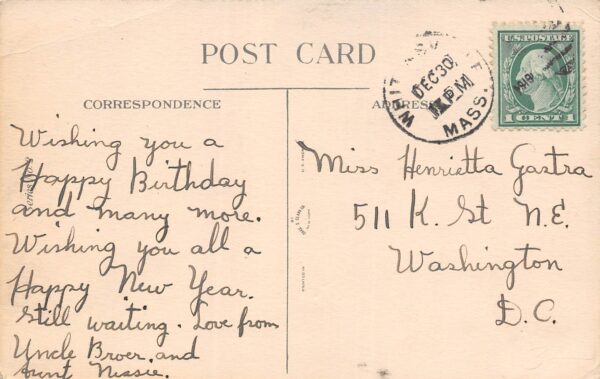 POST CARD
CORRESPONDENCE
ADDRESS
DEC 30
PM
MASS.
1919
U.S. POSTAGE
1 CENT 1
Wishing you a
Happy Birthday
and many more.
Wishing you all a
Happy New Year.
Still waiting. Love from
Uncle Broer and
Aunt Nissie.
Miss Henrietta Gastra
511 K. St N.E.
Washington
D.C.